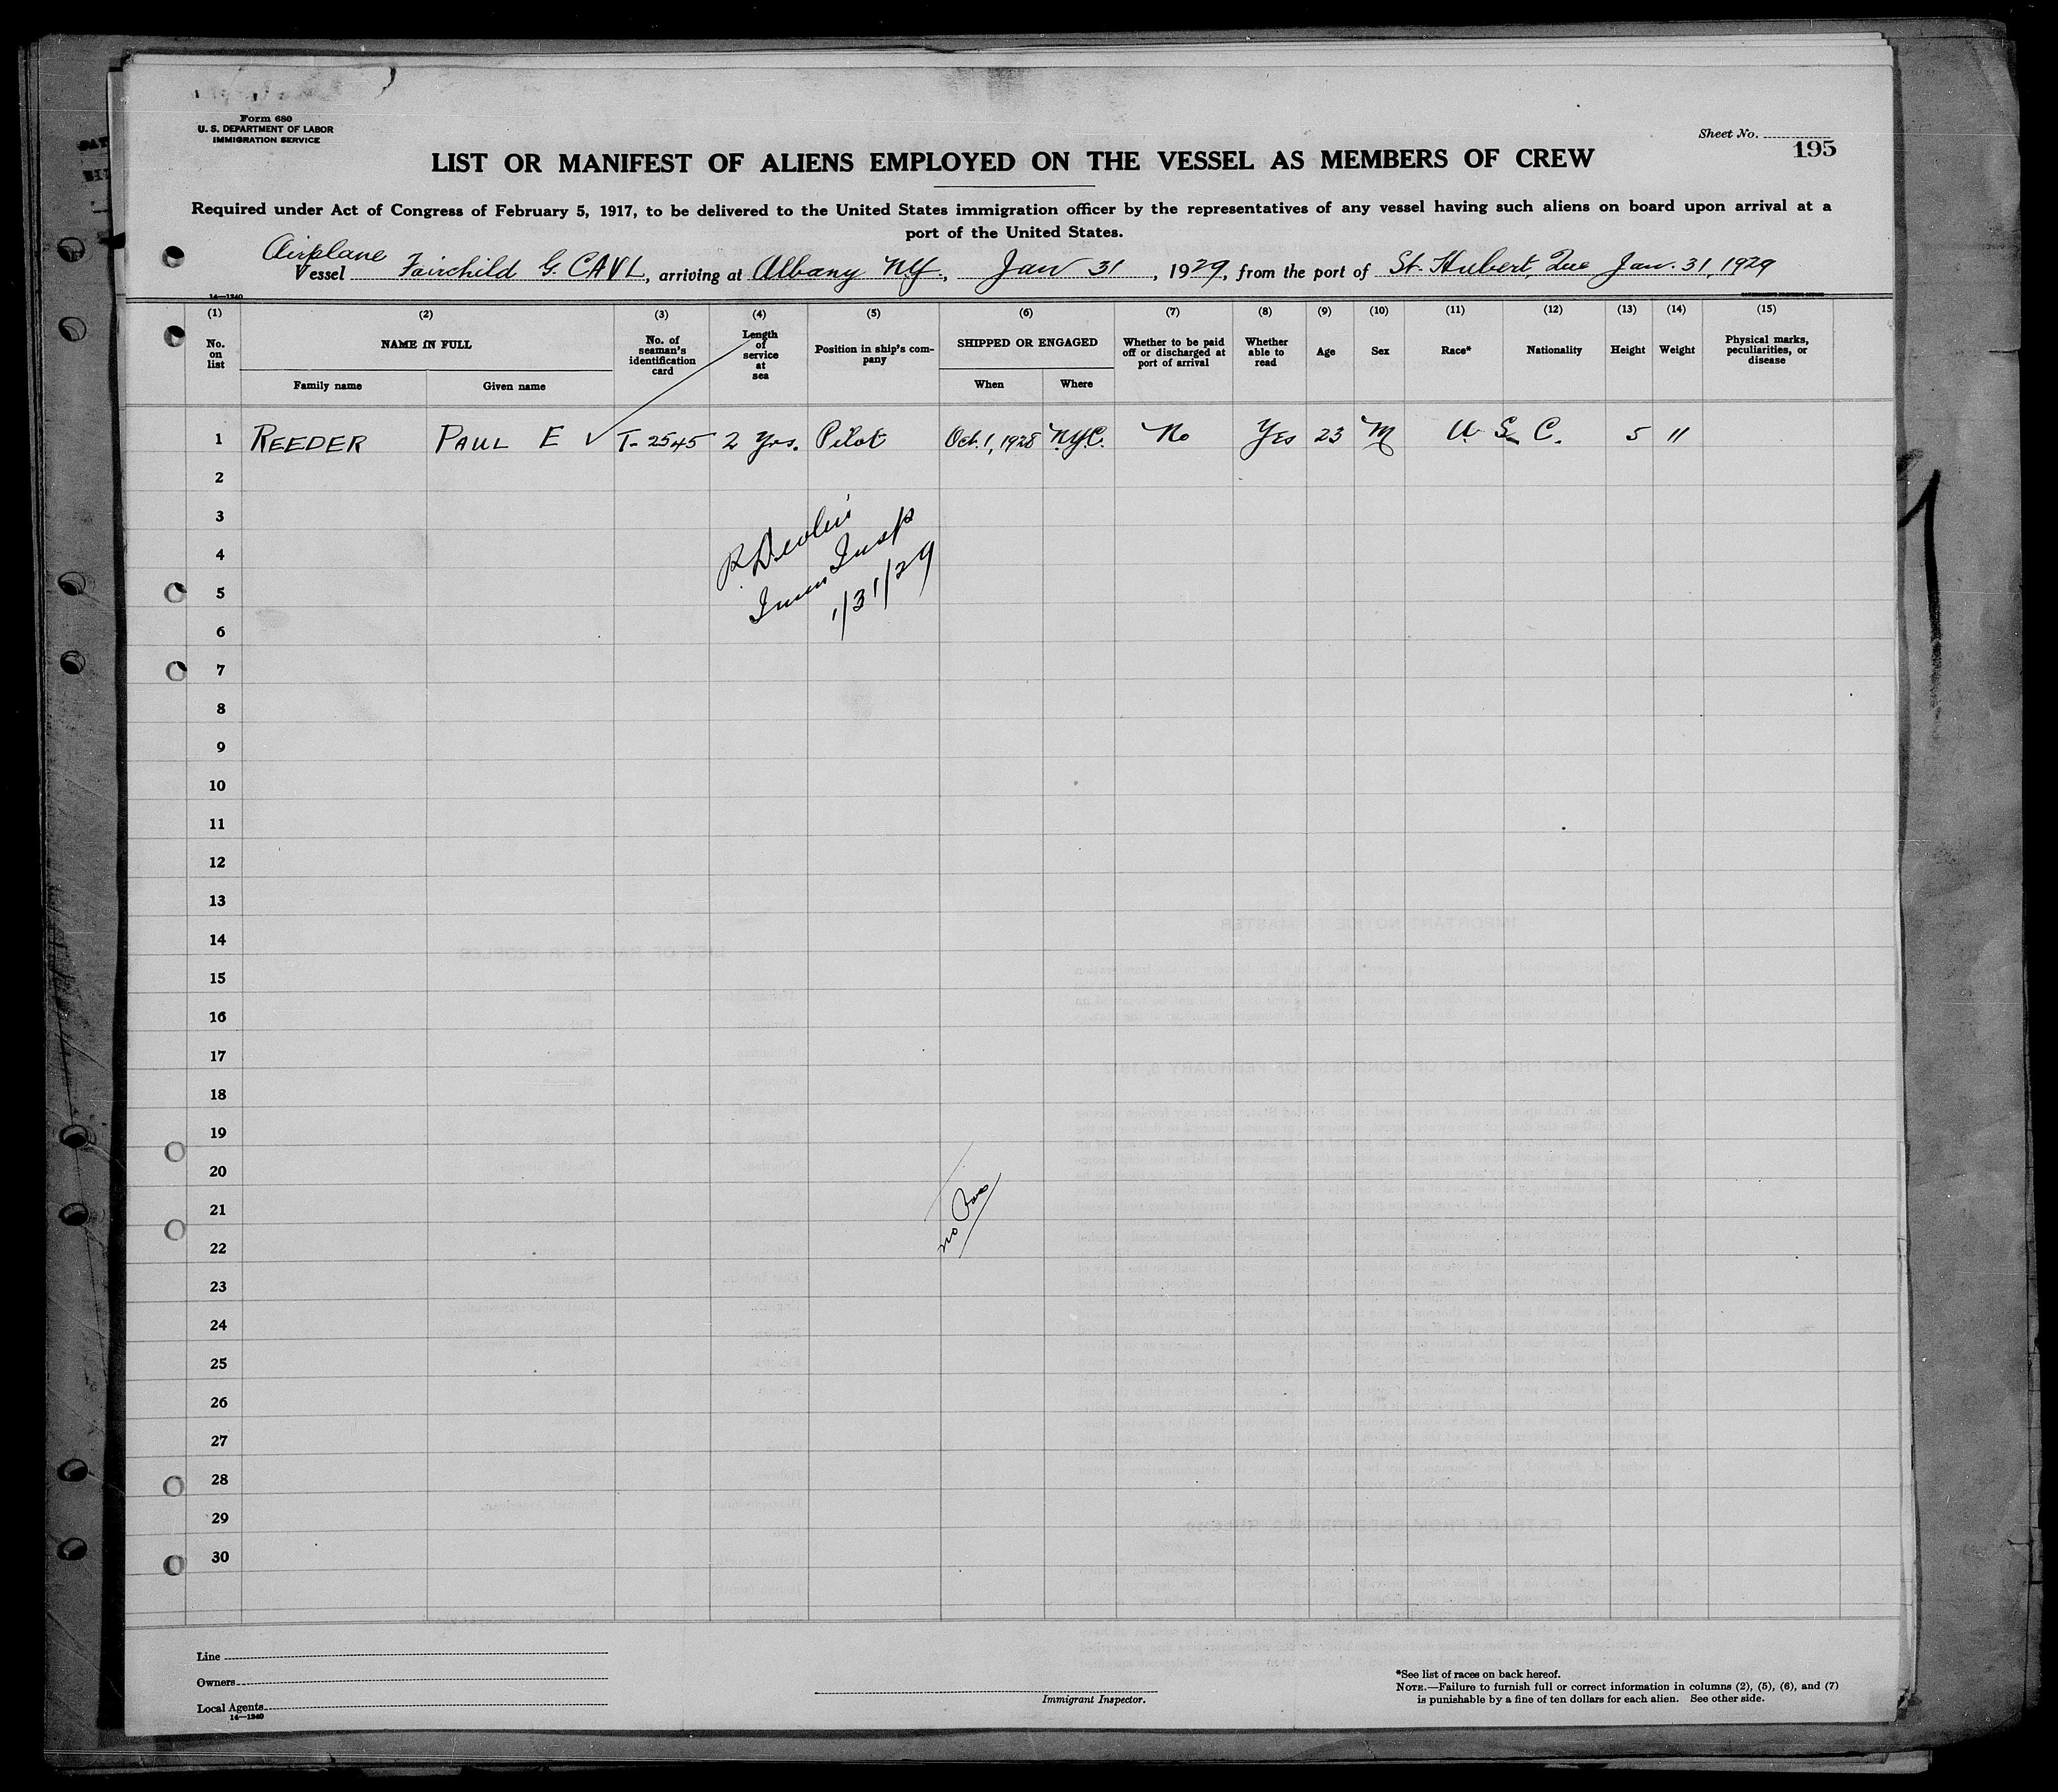 Form 680
U. S. DEPARTMENT OF LABOR
IMMIGRATION SERVICE
Sheet No.
195
LIST OR MANIFEST OF ALIENS EMPLOYED ON THE VESSEL AS MEMBERS OF CREW
Required under Act of Congress of February 5, 1917, to be delivered to the United States immigration officer by the representatives of any vessel having such aliens on board upon arrival at a
port of the United States.
Airplane
Vessel Fairchild G. CAVL, arriving at Albany NY, Jan 31, 1929, from the port of St. Hubert, Que Jan. 31, 1929
14—1240
(1) (2) (3) (4) (5) (6) (7) (8) (9) (10) (11) (12) (13) (14) (15)
No. on list
NAME IN FULL
Family name Given name
No. of seaman's identification card
Length of service at sea
Position in ship's company
SHIPPED OR ENGAGED
When Where
Whether to be paid off or discharged at port of arrival
Whether able to read
Age
Sex
Race*
Nationality
Height
Weight
Physical marks, peculiarities, or disease
1 REEDER PAUL E ✓ T-2545 2 Yrs. Pilot Oct. 1, 1928 N.Y.C. No Yes 23 M U. S. C. 5 11
2
3
4
5
6
7
8
9
10
11
12
13
14
15
16
17
18
19
20
21
22
23
24
25
26
27
28
29
30
Insp
1/31/29
no
Line
Owners
Local Agents
14—1240
Immigrant Inspector.
*See list of races on back hereof.
NOTE.—Failure to furnish full or correct information in columns (2), (5), (6), and (7)
is punishable by a fine of ten dollars for each alien. See other side.